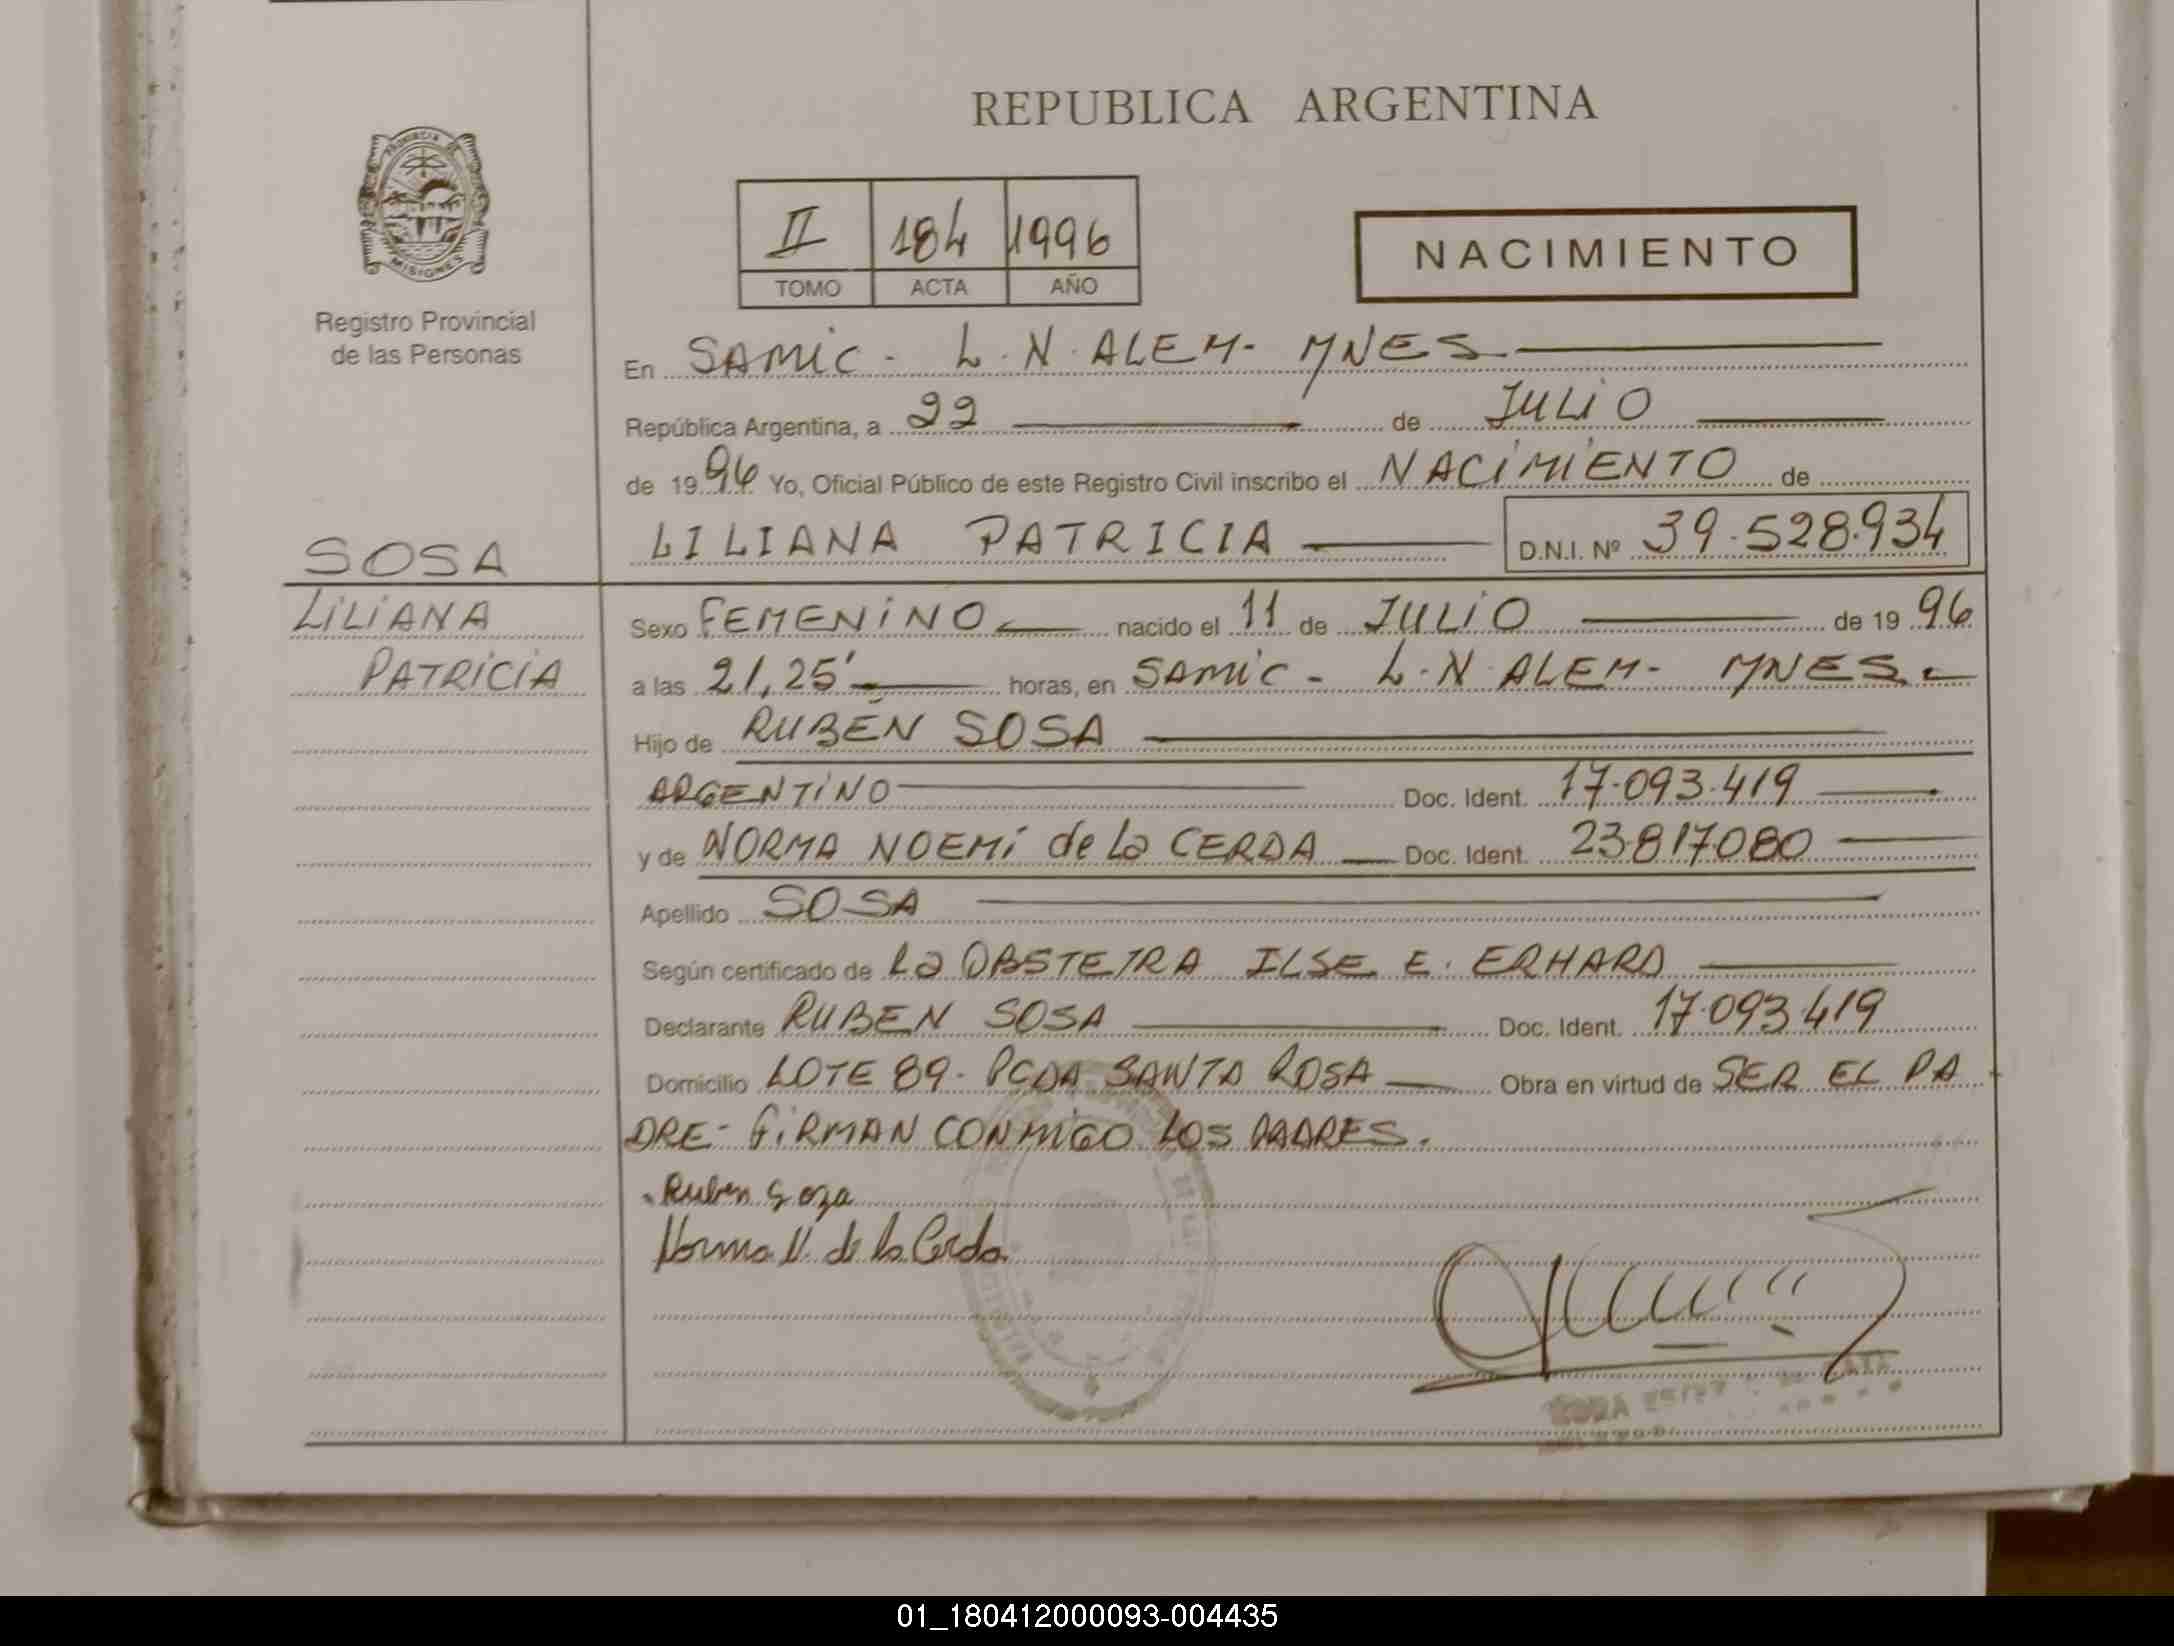 REPUBLICA ARGENTINA
PROVINCIA DE MISIONES
Registro Provincial
de las Personas
II 184 1996
TOMO ACTA AÑO
NACIMIENTO
En SAMIC - L.N. ALEM - MNES
República Argentina, a 22 de JULIO
de 1996 Yo, Oficial Público de este Registro Civil inscribo el NACIMIENTO de
SOSA
LILIANA PATRICIA D.N.I. Nº 39.528.934
LILIANA
PATRICIA
Sexo FEMENINO nacido el 11 de JULIO de 1996
a las 21,25' horas, en SAMIC - L.N. ALEM - MNES.
Hijo de RUBÉN SOSA
ARGENTINO Doc. Ident. 17.093.419
y de NORMA NOEMÍ de la CERDA Doc. Ident. 23.817.080
Apellido SOSA
Según certificado de La OBSTETRA ILSE E. ERHARD
Declarante RUBEN SOSA Doc. Ident. 17.093.419
Domicilio LOTE 89 - PCDA SANTA ROSA Obra en virtud de SER EL PA
DRE - FIRMAN CONMIGO LOS PADRES.
Ruben Soza
Norma N. de la Cerda
01_180412000093-004435